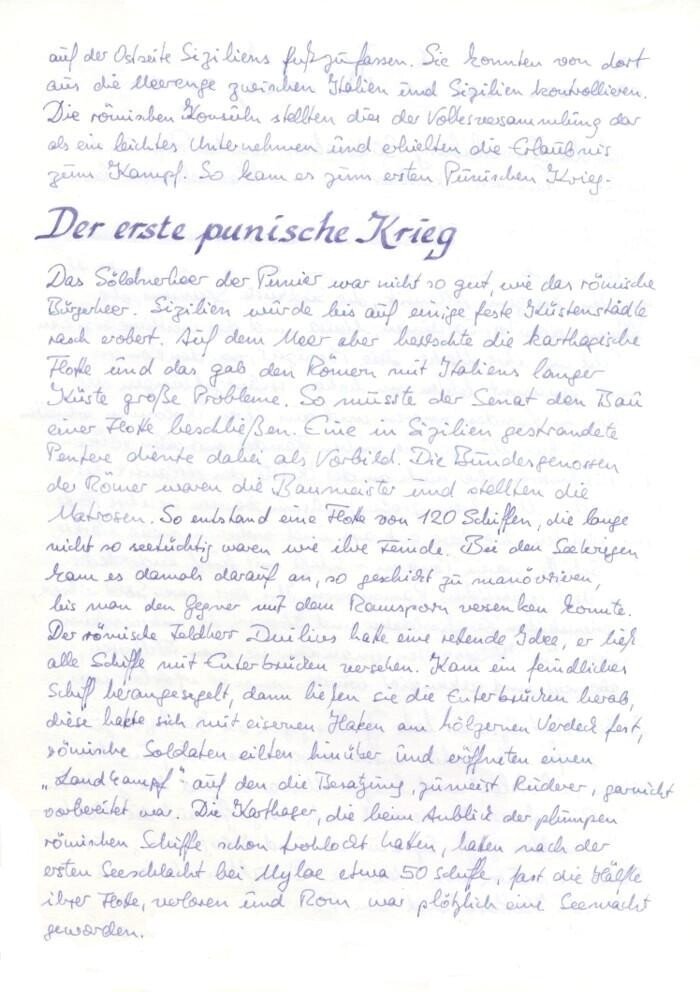 auf der Ostseite Siziliens fußzufassen. Sie konnten von dort
aus die Meerenge zwischen Italien und Sizilien kontrollieren.
Die römischen Konsuln stellten dies der Volksversammlung dar
als ein leichtes Unternehmen und erhielten die Erlaubnis
zum Kampf. So kam es zum ersten Punischen Krieg.
Der erste punische Krieg
Das Söldnerheer der Punier war nicht so gut, wie das römische
Bürgerheer. Sizilien wurde bis auf einige feste Küstenstädte
rasch erobert. Auf dem Meer aber herrschte die karthagische
Flotte und das gab den Römern mit Italiens langer
Küste große Probleme. So musste der Senat den Bau
einer Flotte beschließen. Eine in Sizilien gestrandete
Pentere diente dabei als Vorbild. Die Bundesgenossen
der Römer waren die Baumeister und stellten die
Matrosen. So entstand eine Flotte von 120 Schiffen, die lange
nicht so seetüchtig waren wie ihre Feinde. Bei den Seekriegen
kam es damals darauf an, so geschickt zu manövrieren,
bis man den Gegner mit dem Rammsporn versenken konnte.
Der römische Feldherr Duilius hatte eine rettende Idee, er ließ
alle Schiffe mit Enterbrücken versehen. Kam ein feindliches
Schiff herangesegelt, dann ließen sie die Enterbrücken herab,
diese hakte sich mit eisernen Haken am hölzernen Verdeck fest,
römische Soldaten eilten hinüber und eröffneten einen
„Landkampf" auf den die Besatzung, zumeist Ruderer, garnicht
vorbereitet war. Die Karthager, die beim Anblick der plumpen
römischen Schiffe schon frohlockt hatten, hatten nach der
ersten Seeschlacht bei Mylae etwa 50 Schiffe, fast die Hälfte
ihrer Flotte, verloren und Rom war plötzlich eine Seemacht
geworden.